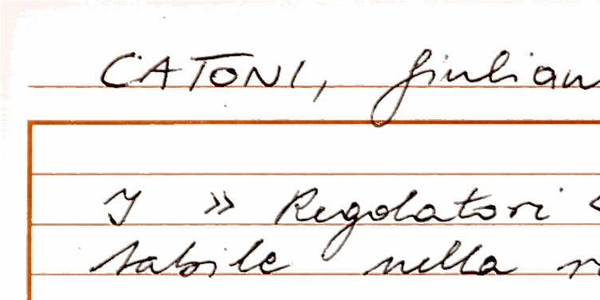 CATONI, Giulian
I » Regolatori «
tabile nella r